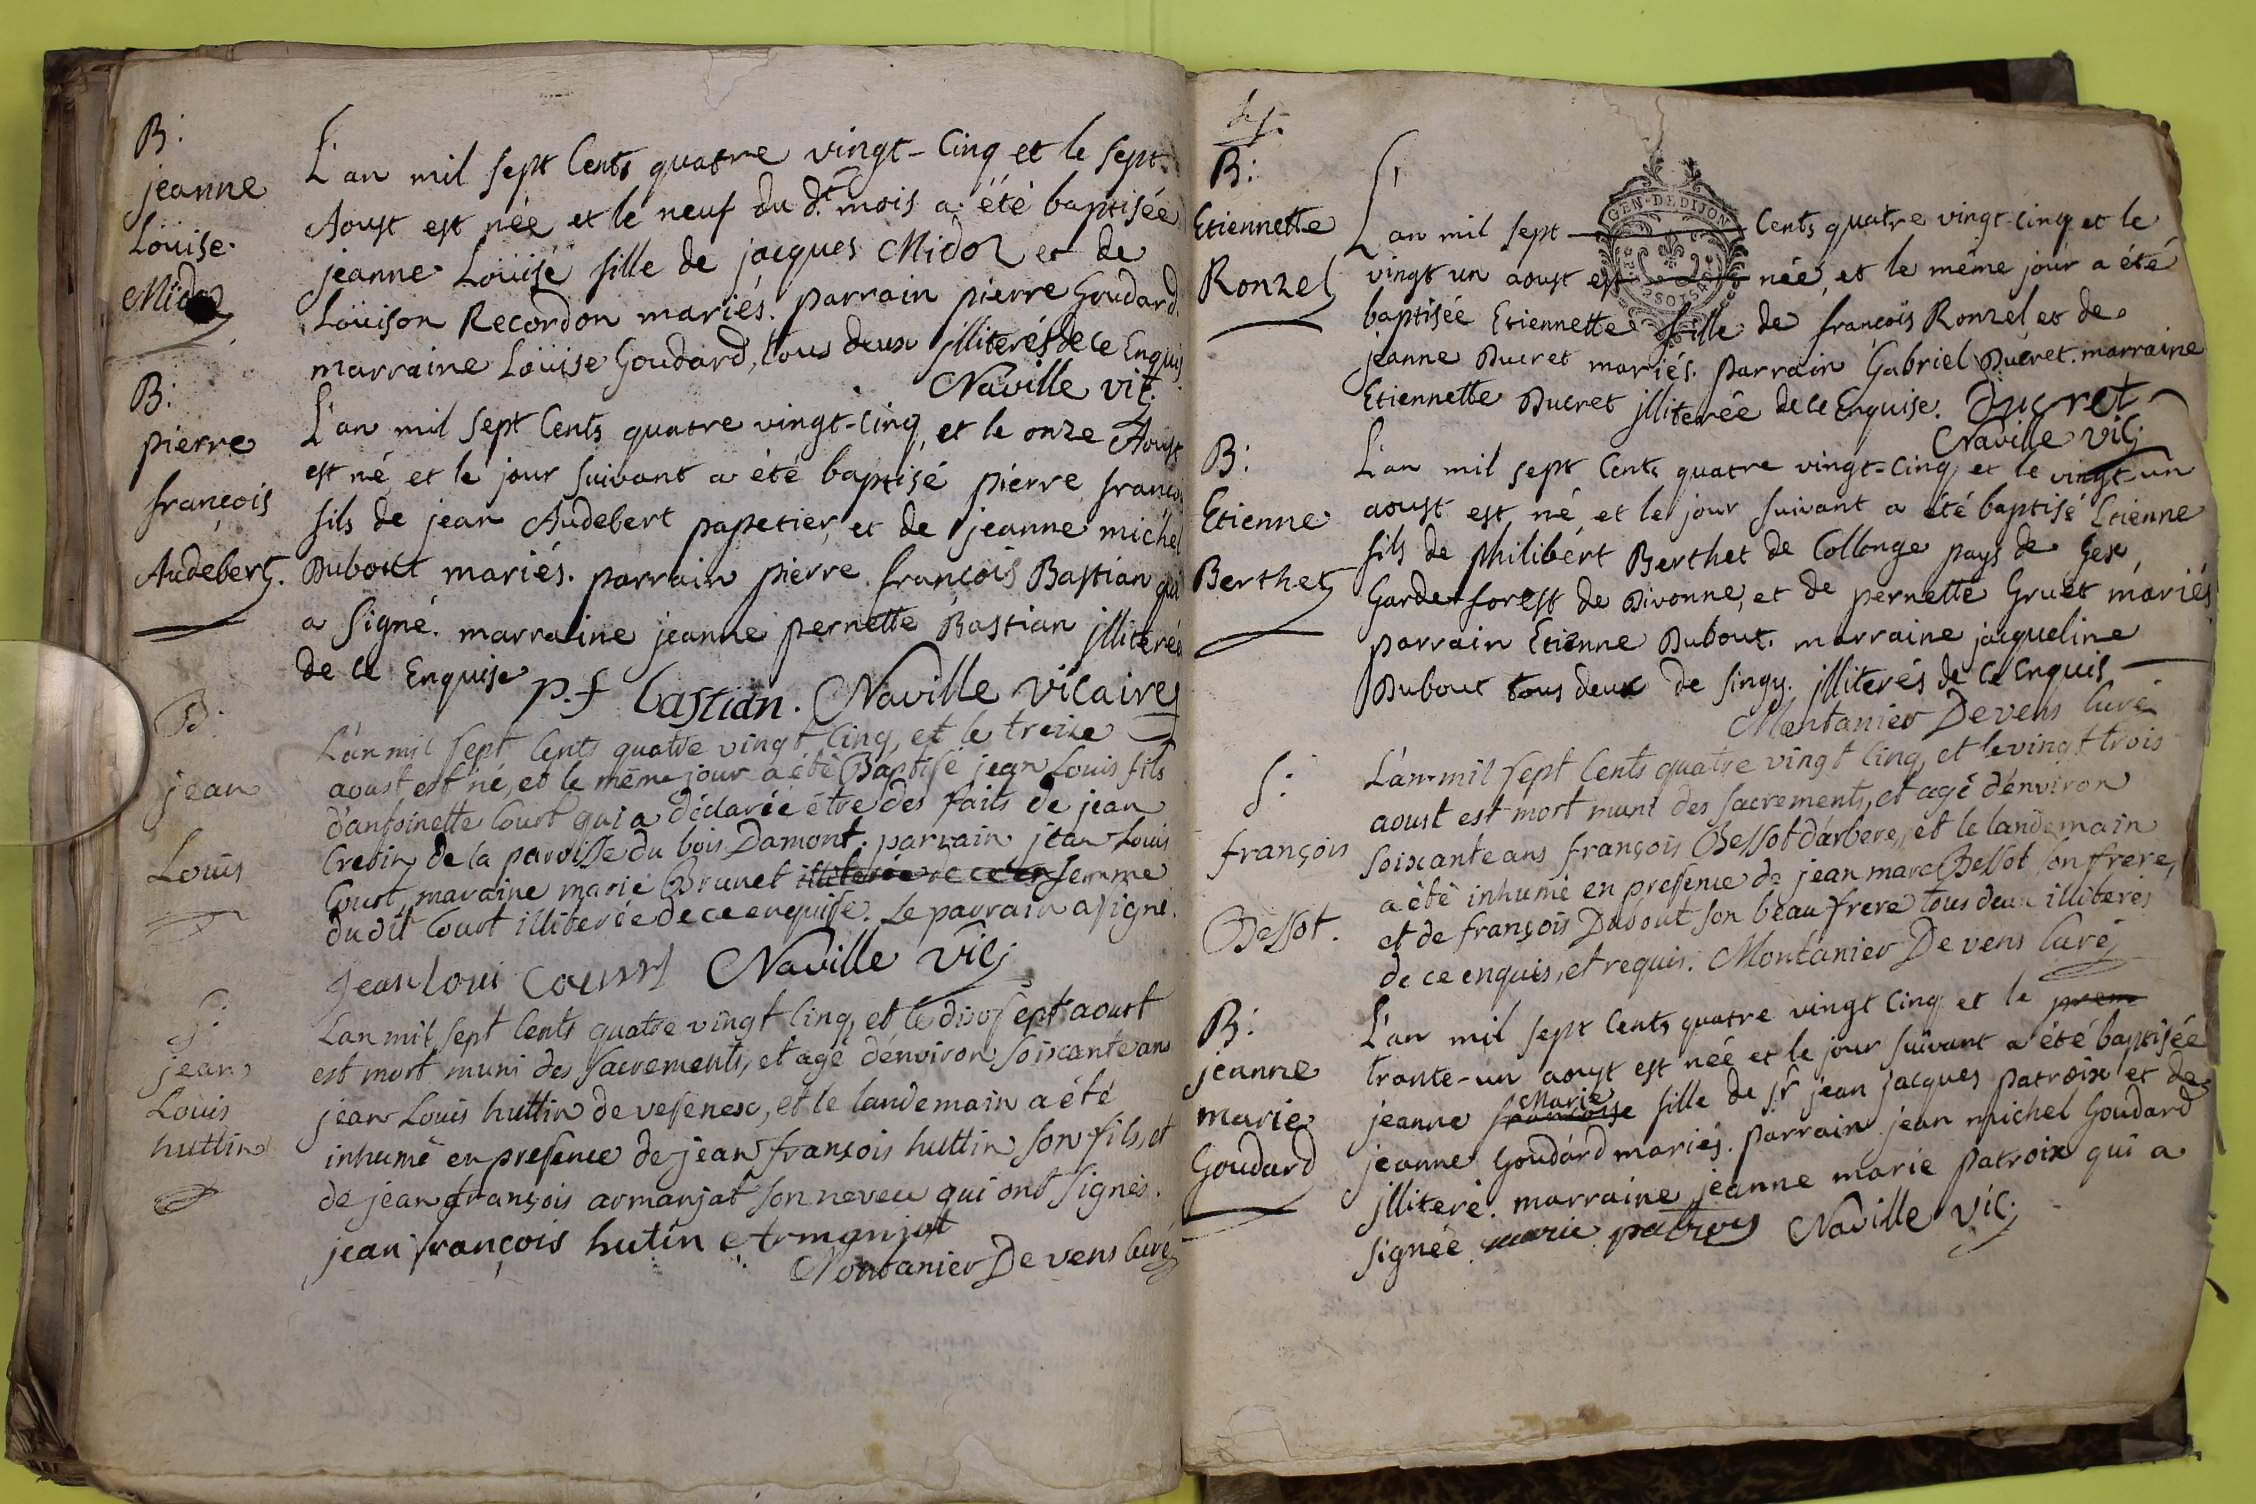 B:
jeanne
Loüise
Midoz
L'an mil sept Cents quatre vingt-Cinq et le sept
Aoust est née et le neuf du d.t mois a été baptisée
jeanne Loüise fille de jacques Midoz et de
Loüison Recordon mariés. parrain pierre Goudard.
marraine Loüise Goudard, tous deux jlliterés de ce Enquis.
Naville vic:
B:
pierre
françois
Audebert.
L'an mil sept Cents quatre vingt-Cinq, et le onze Aoust
est né et le jour suivant a été baptisé pierre françois
fils de jean Audebert papetier, et de jeanne michel
Dubout mariés. parrain pierre françois Bastian qui
a signé. marraine jeanne pernette Bastian jlliterée
de ce Enquise
p.f bastian. Naville vicaire
B:
jean
Louis
L'an mil sept Cents quatre vingt Cinq, et le treize
aoust est né, et le même jour a été Baptisé jean Louis fils
d'antoinette Court qui a déclarée être des faits de jean
Cretin de la paroisse du bois Damont. parrain jean Louis
Court, maraine marie Brunet illiterée de ce en femme
dudit Court illiterée de ce enquise. Le parrain a signé.
jean loui Courtt Naville vic:
S:
jean
Louis
huttin
L'an mil sept Cents quatre vingt Cinq, et le dix sept aoust
est mort muni des sacrements, et agé d'environ soixante ans
jean Louis huttin de vesenex, et le landemain a été
inhumé en presence de jean françois huttin son fils, et
de jean françois armanjat son neveu qui ont signés.
jean françois hutin Armanjat
Montanier De vens Curé
B:
Etiennette
Ronzel
L'an mil sept Cents quatre vingt-Cinq et le
GEN·DE DIJON
vingt un aoust est née, et le même jour a été
baptisée Etiennette fille de françois Ronzel et de
jeanne Ducret mariés. parrain Gabriel Ducret. marraine
Etiennette Ducret jlliterée de ce Enquise. Ducret
Naville vic:
B:
Etienne
Berthet
L'an mil sept Cents quatre vingt-Cinq et le vingt-un
aoust est né et le jour suivant a été baptisé Etienne
fils de philibert Berthet de Collonge pays de Gex
Garde-forest de Divonne, et de pernette Gruet mariés
parrain Etienne Dubout. marraine jacqueline
Dubout tous deux de singy. jlliterés de ce Enquis
Montanier De vens Curé
S:
françois
Bessot.
L'an mil sept Cents quatre vingt Cinq, et le vingt trois
aoust est mort muni des sacrements, et agé d'environ
soixante ans françois Bessot d'arbere, et le landemain
a été inhumé en presence de jean marc Bessot son frere,
et de françois Dubout son beau frere tous deux illiteres
de ce enquis, et requis. Montanier De vens Curé
B:
jeanne
marie
Goudard
L'an mil sept Cents quatre vingt Cinq et le prem
trante-un aoust est née et le jour suivant a été baptisée
jeanne françoise Marie fille de s.r jean jacques patroix et de
jeanne Goudard mariés. parrain jean michel Goudard
jlliteré. marraine jeanne marie patroix qui a
signée marie patroix Naville vic: